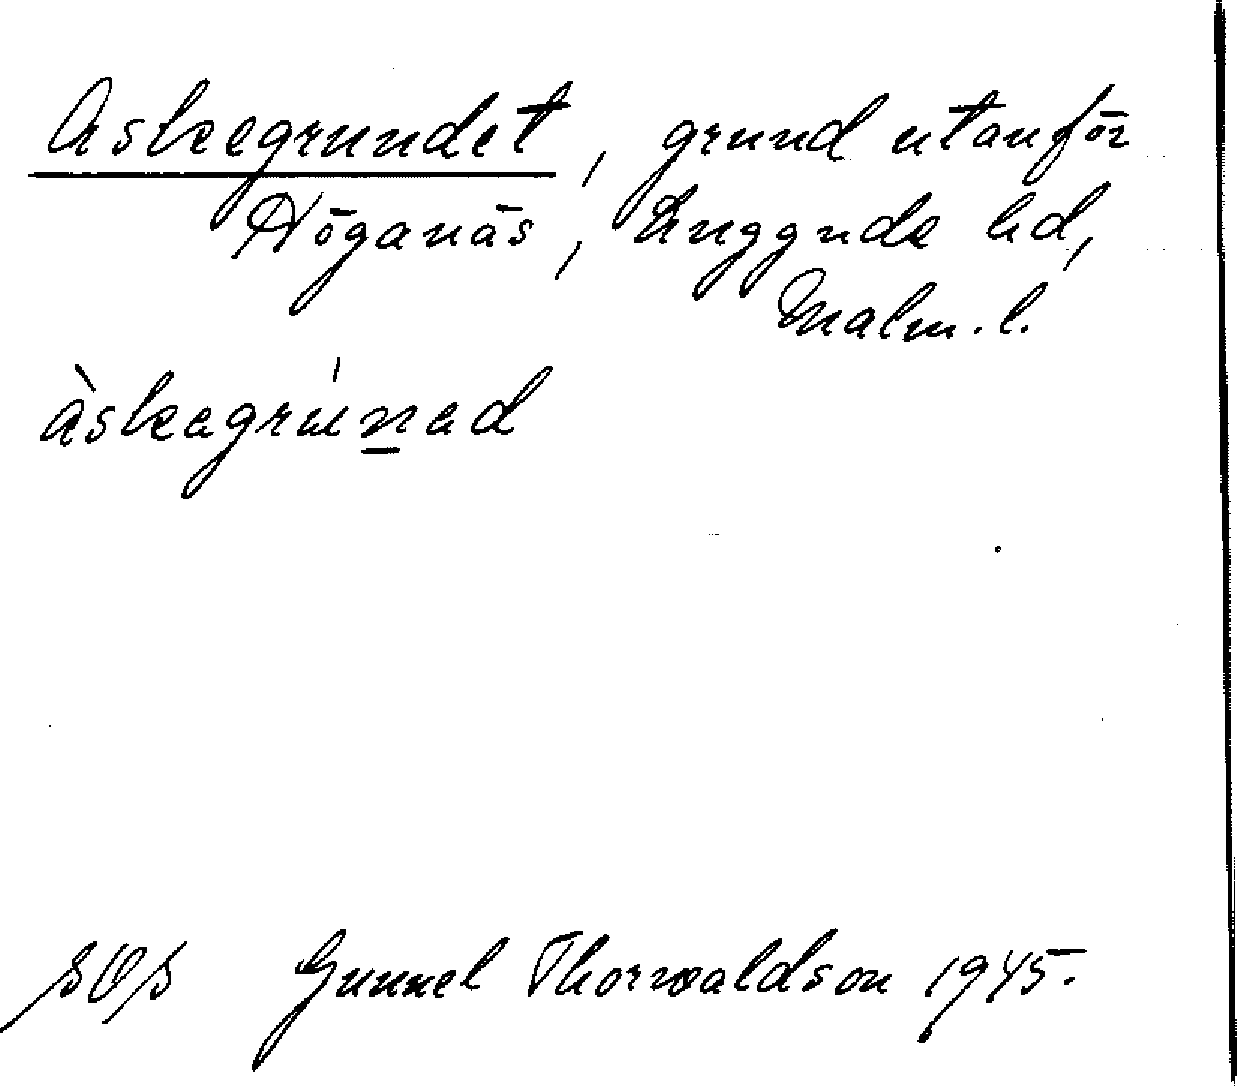 Askegrundet, grund utanför
Höganäs, Luggude hd,
Malm. l.
àskegrúnad
SOS Gunnel Thorwaldson 1945.